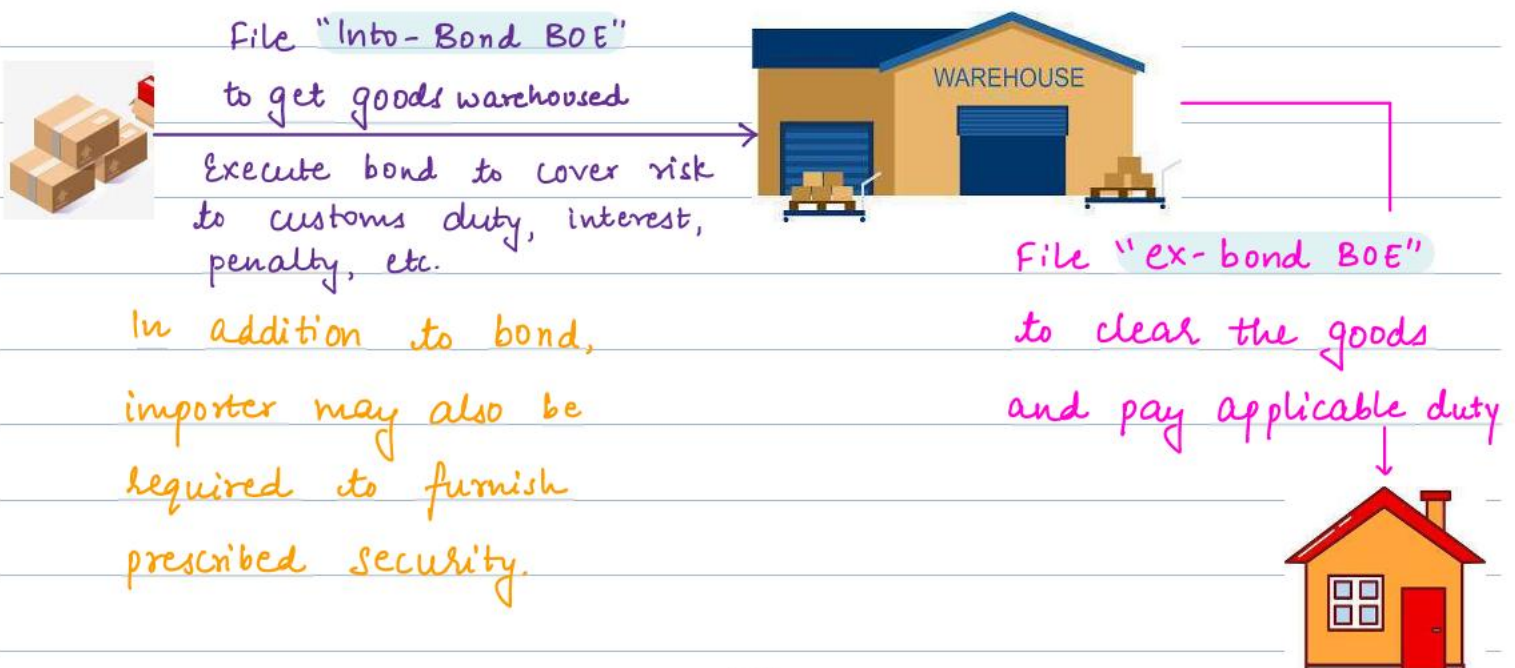 File "Into-Bond BOE"
to get goods warehoused
Execute bond to cover risk
to customs duty, interest,
penalty, etc.
In addition to bond,
importer may also be
required to furnish
prescribed security.
WAREHOUSE
File "ex-bond BOE"
to clear the goods
and pay applicable duty